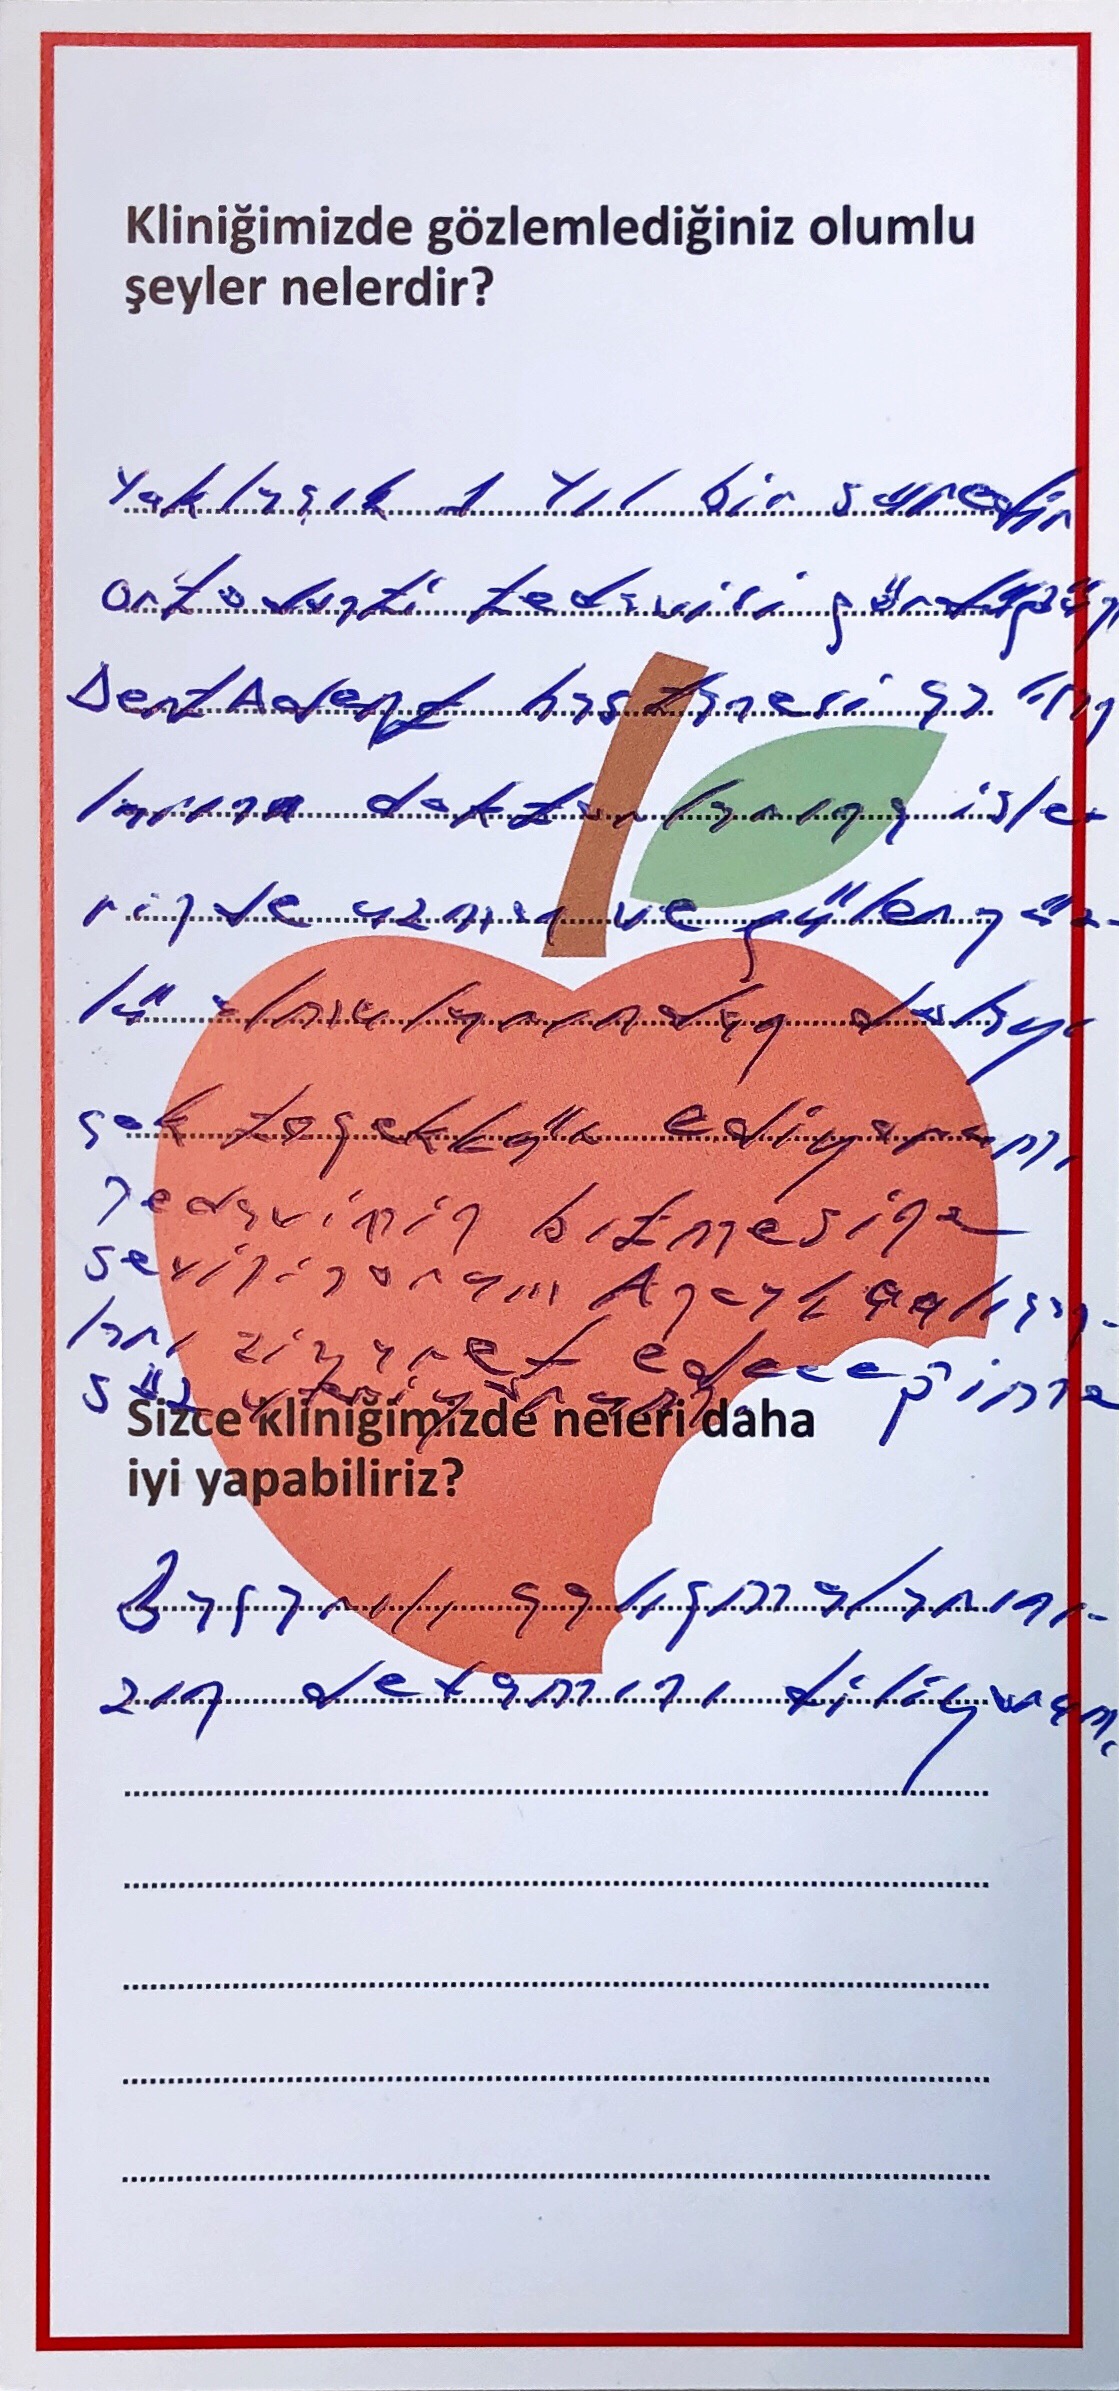 Kliniğimizde gözlemlediğiniz olumlu
şeyler nelerdir?
Yaklaşık 1 Yıl bir süredir
ortodonti tedavisi gördüğüm
DentAdent hastanesi çalışan
larına doktorlarına işle-
rinde uzman ve güler yüz-
lü olmalarından dolayı
çok teşekkür ediyorum.
Tedavimin bitmesine
seviniyorum Ancak çalışan-
ları ziyaret edeceğime
söz veriyorum.
Sizce kliniğimizde neleri daha
iyi yapabiliriz?
Başarılı çalışmalarını-
zın devamını diliyorum.